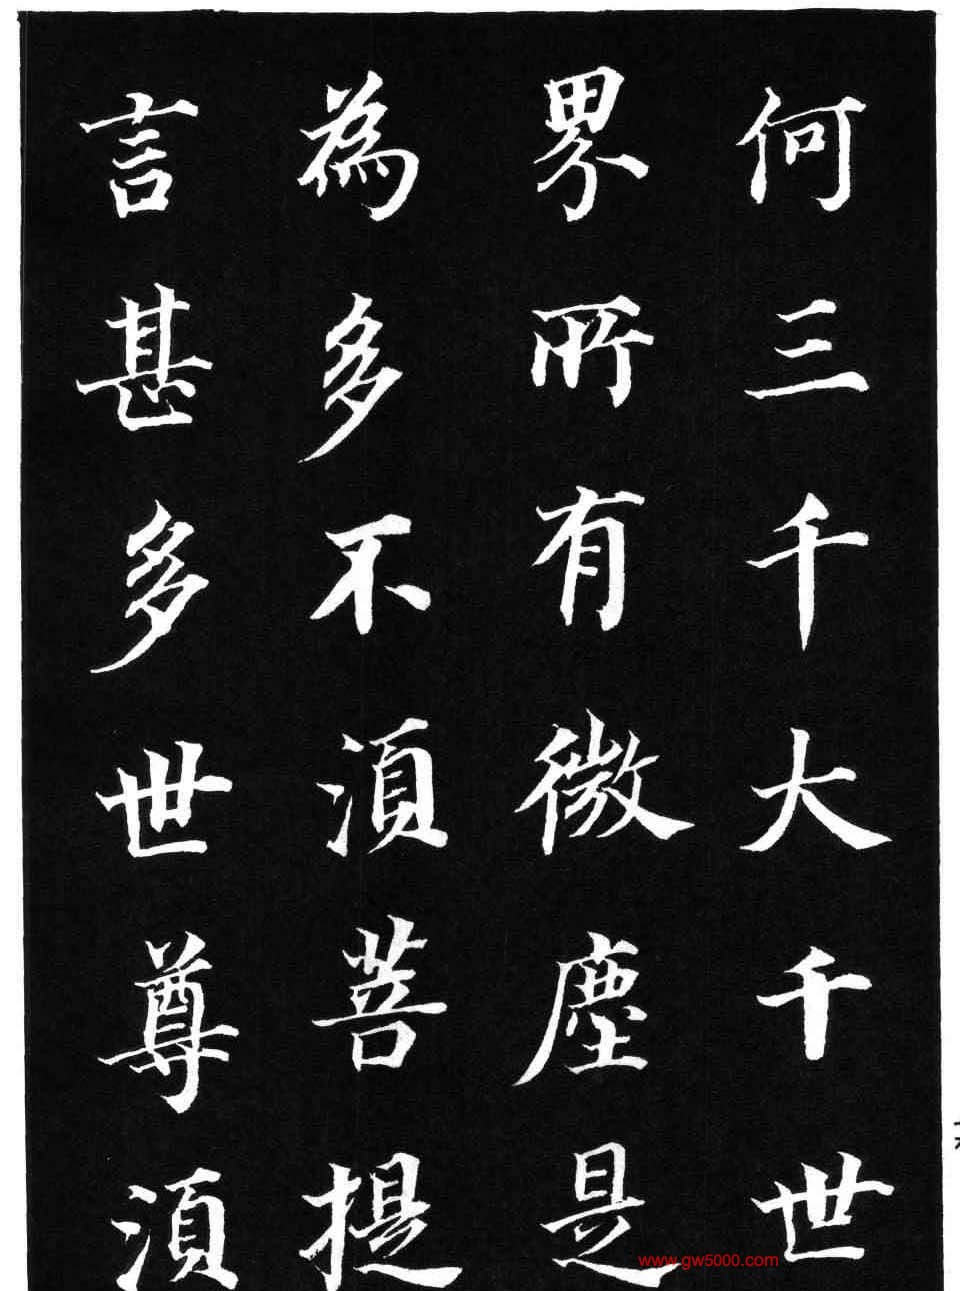 何三千大千世
界所有微塵是
為多不湏菩提
言甚多世尊湏
www.gw5000.com